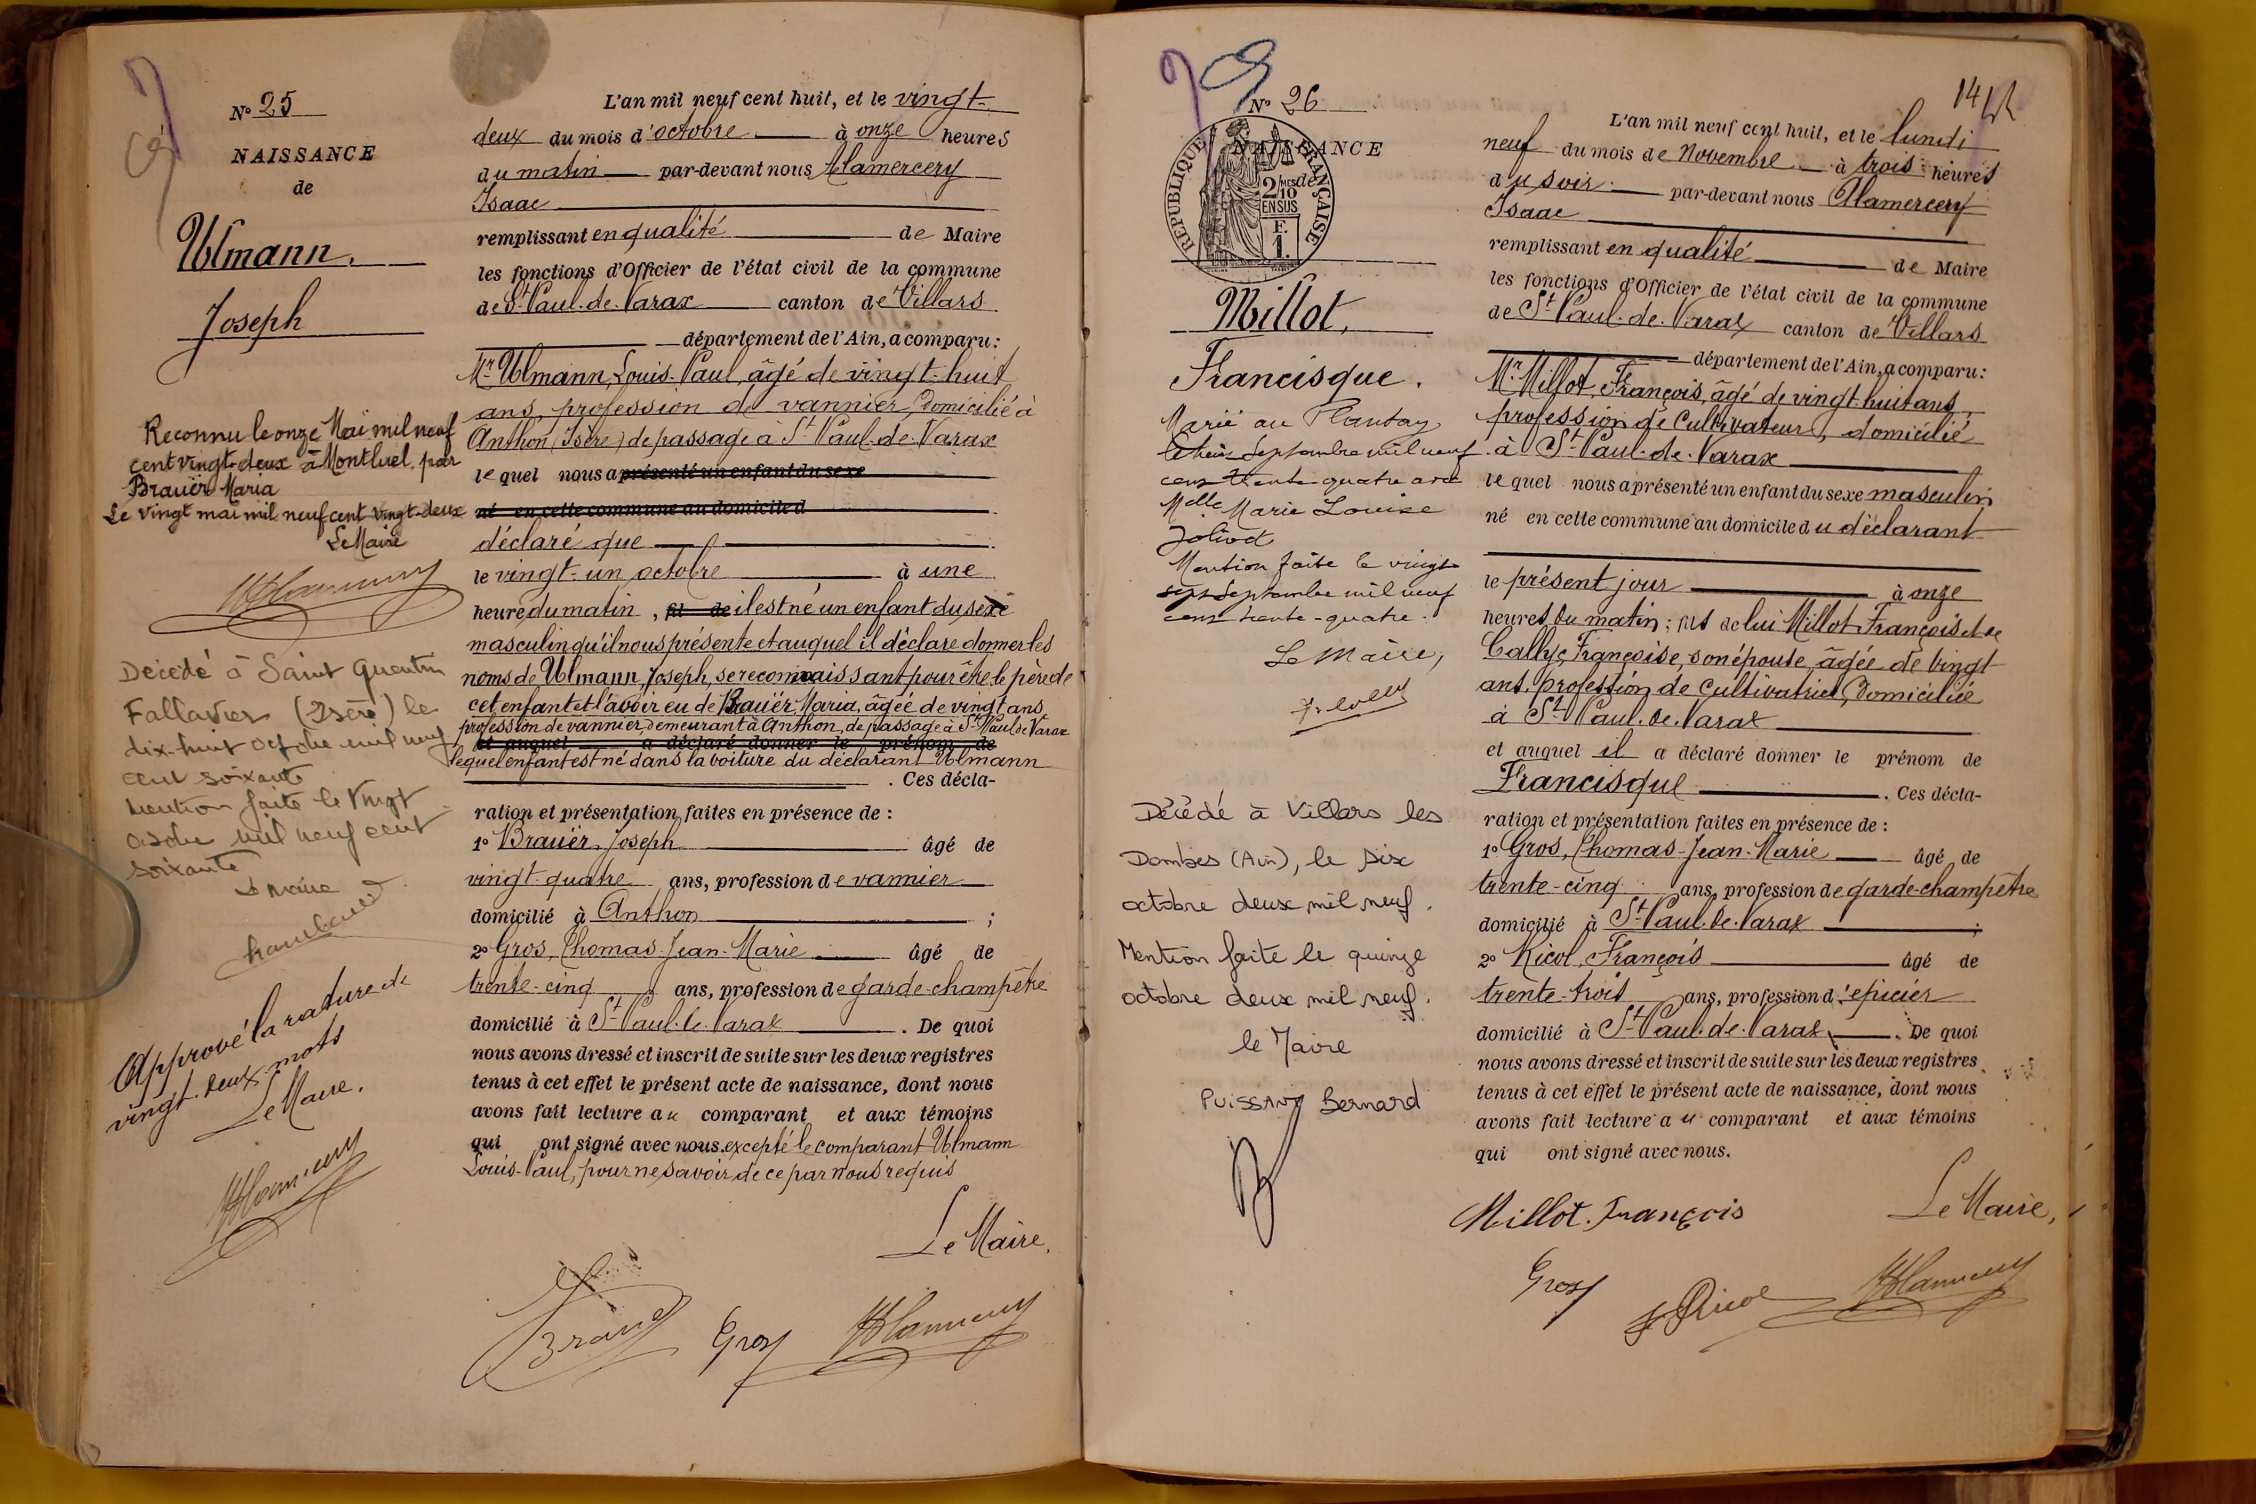 N° 25
NAISSANCE
de
Ulmann,
Joseph
Reconnu le onze Mai mil neuf
cent vingt-deux à Montluel par
Brauër Maria
Le vingt mai mil neuf cent vingt-deux
Le Maire
Décédé à Saint Quentin
Fallavier (Isère) le
dix-huit octobre mil neuf
cent soixante
Mention faite le vingt
octobre mil neuf cent
soixante
Le Maire
Approuvé la rature de
vingt-deux mots
Le Maire.
L'an mil neuf cent huit, et le vingt-
deux du mois d'octobre à onze heures
du matin par-devant nous Alamercery
Isaac
remplissant en qualité de Maire
les fonctions d'Officier de l'état civil de la commune
de St Paul-de-Varax canton de Villars
département de l'Ain, a comparu:
Mr Ulmann, Louis-Paul, âgé de vingt-huit
ans, profession de vannier, domicilié à
Anthon (Isère) de passage à St Paul-de-Varax
lequel nous a présenté un enfant du sexe
né en cette commune au domicile d
déclaré que
le vingt-un octobre à une
heure du matin, fil de il est né un enfant du sexe
masculin qu'il nous présente et auquel il déclare donner les
noms de Ulmann, Joseph, se reconnaissant pour être le père de
cet enfant et l'avoir eu de Brauër Maria, âgée de vingt ans
profession de vannier, demeurant à Anthon, de passage à St Paul de Varax
et auquel a déclaré donner le prénom de
lequel enfant est né dans la voiture du déclarant Ulmann
. Ces décla-
ration et présentation faites en présence de :
1° Brauër, Joseph âgé de
vingt-quatre ans, profession de vannier
domicilié à Anthon ;
2° Gros, Thomas-Jean-Marie âgé de
trente-cinq ans, profession de garde-champêtre
domicilié à St Paul-de-Varax . De quoi
nous avons dressé et inscrit de suite sur les deux registres
tenus à cet effet le présent acte de naissance, dont nous
avons fait lecture au comparant et aux témoins
qui ont signé avec nous. excepté le comparant Ulmann
Louis-Paul, pour ne savoir de ce par nous requis
Le Maire.
Gros
14
N° 26
NAISSANCE
de
RÉPUBLIQUE FRANÇAISE
2/10 MES
EN SUS
F.
1.
Millot,
Francisque.
Marié au Plantay
le huit Septembre mil neuf
cent trente-quatre avec
Melle Marie Louise
Jolivet
Mention faite le vingt
sept Septembre mil neuf
cent trente-quatre.
Le Maire,
Décédé à Villars les
Dombes (Ain), le six
octobre deux mil neuf.
Mention faite le quinze
octobre deux mil neuf.
le Maire
PUISSANT Bernard
L'an mil neuf cent huit, et le lundi
neuf du mois de Novembre à trois heures
du soir par-devant nous Alamercery
Isaac
remplissant en qualité de Maire
les fonctions d'Officier de l'état civil de la commune
de St Paul-de-Varax canton de Villars
département de l'Ain, a comparu:
Mr Millot, François, âgé de vingt-huit ans,
profession de Cultivateur, domicilié
à St Paul-de-Varax
lequel nous a présenté un enfant du sexe masculin
né en cette commune au domicile du déclarant
le présent jour à onze
heures du matin; fils de lui Millot François et de
Callye, Françoise, son épouse, âgée de vingt
ans, profession de Cultivatrice, domiciliée
à St Paul-de-Varax
et auquel il a déclaré donner le prénom de
Francisque . Ces décla-
ration et présentation faites en présence de :
1° Gros, Thomas-Jean-Marie âgé de
trente-cinq ans, profession de garde-champêtre
domicilié à St Paul-de-Varax ;
2° Nicol, François âgé de
trente-trois ans, profession d'épicier
domicilié à St Paul-de-Varax . De quoi
nous avons dressé et inscrit de suite sur les deux registres
tenus à cet effet le présent acte de naissance, dont nous
avons fait lecture au comparant et aux témoins
qui ont signé avec nous.
Millot. François
Le Maire,
Gros